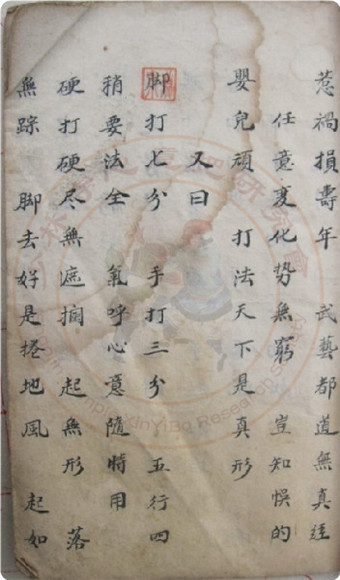 惹禍損壽年 武藝都道無真經
任意变化势無窮 豈知悞的
嬰兒頑 打法天下是真形
又曰
脚打七分 手打三分 五行四
稍要法全 氣呼心意隨時用
硬打硬尽無遮掤 起無形 落
無踪 脚去好是捲地風 起如